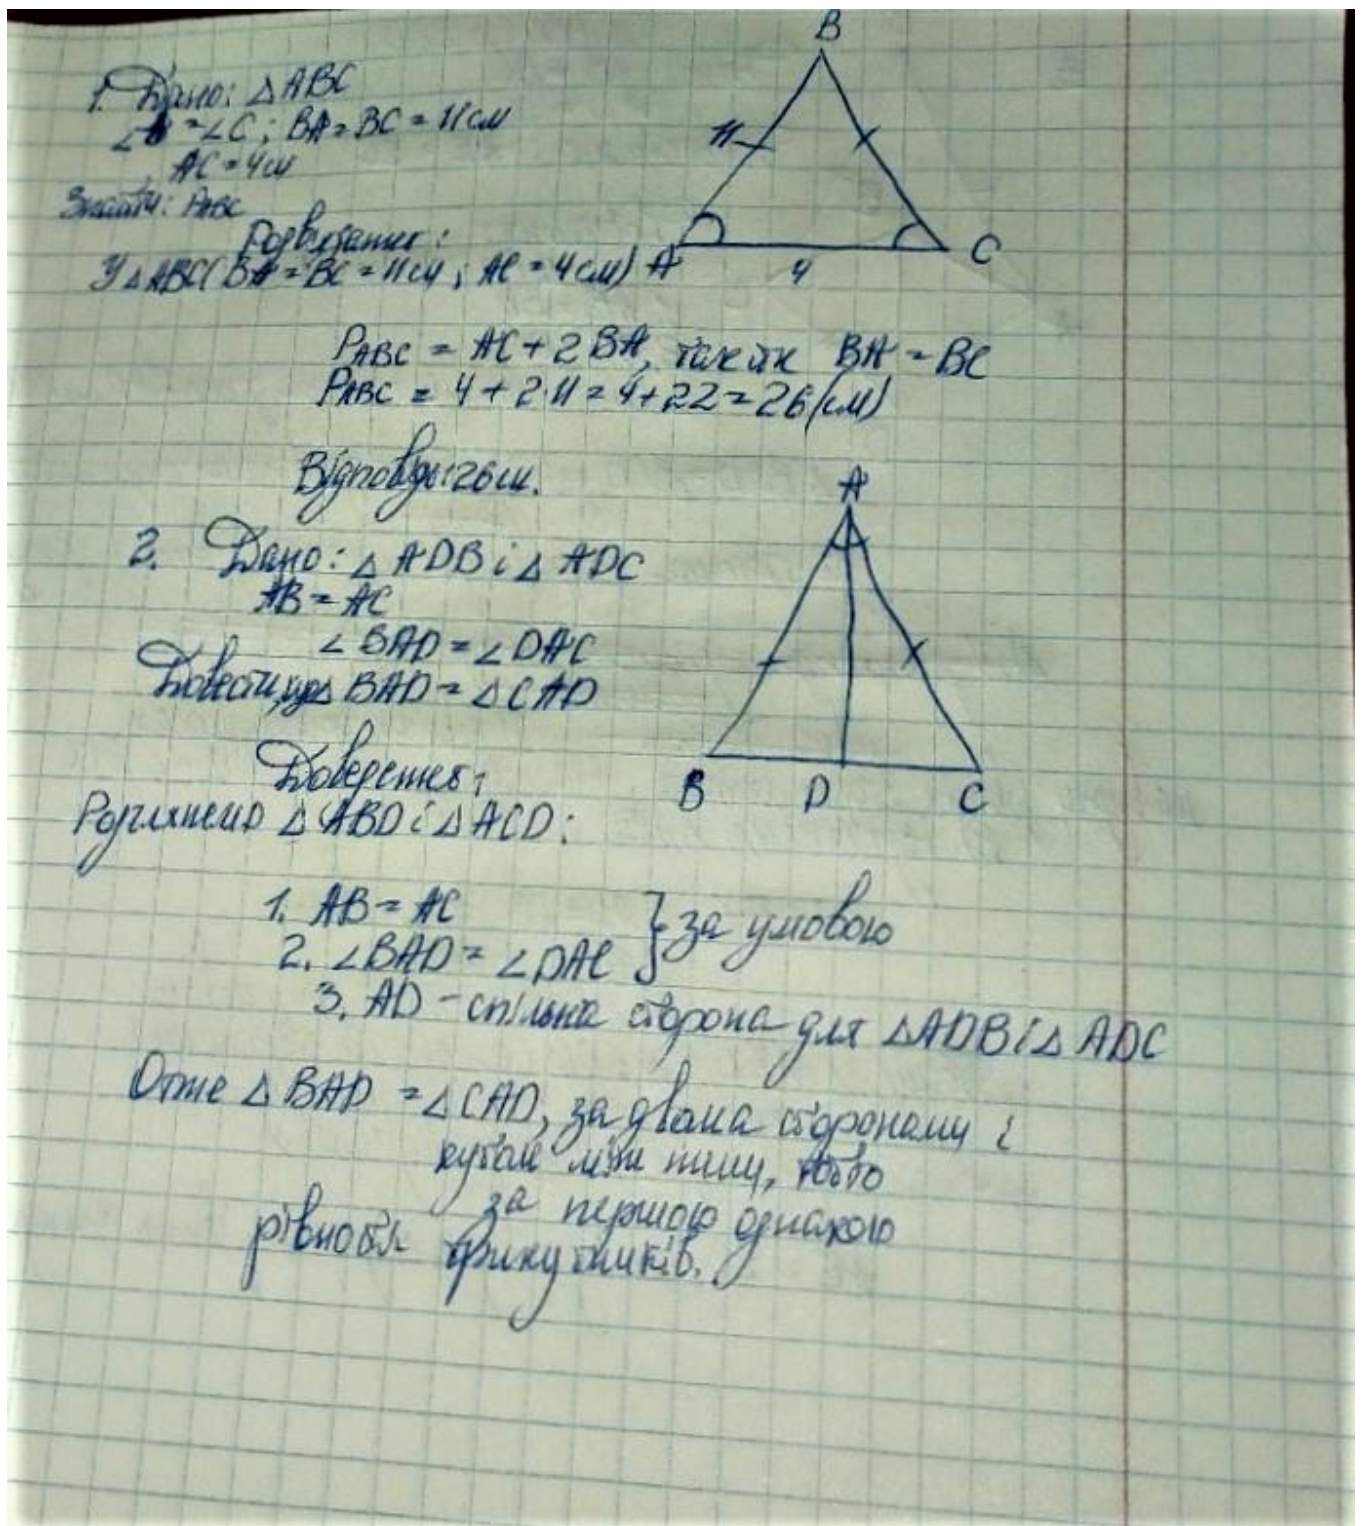 B
1. Дано: △ABC
∠ = ∠C; BA = BC = 11 см
AC = 4 см
Знайти: PABC
11
A
4
C
Розв'язання:
У △ABC (BA = BC = 11 см; AC = 4 см)
PABC = AC + 2 BA, так як BA = BC
PABC = 4 + 2·11 = 4 + 22 = 26 (см)
Відповідь: 26 см.
A
2. Дано: △ ADB і △ ADC
AB = AC
∠ BAD = ∠ DAC
Довести, △ BAD = △ CAD
B D C
Доведення:
Розглянемо △ ABD і △ ACD:
1. AB = AC
2. ∠BAD = ∠DAC } за умовою
3. AD - спільна сторона для △ADB і △ ADC
Отже △ BAD = △ CAD, за двома сторонами і
кутом між ними, тобто
за першою ознакою
рівності трикутників.